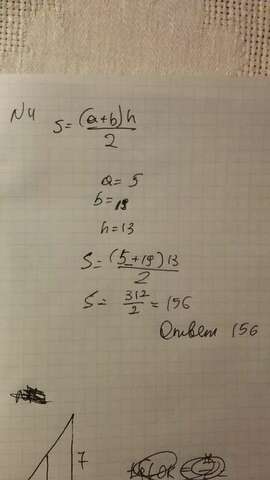 N4
S = (a+b)h / 2
a = 5
b = 19
h = 13
S = (5+19)13 / 2
S = 312 / 2 = 156
Ответ 156
7